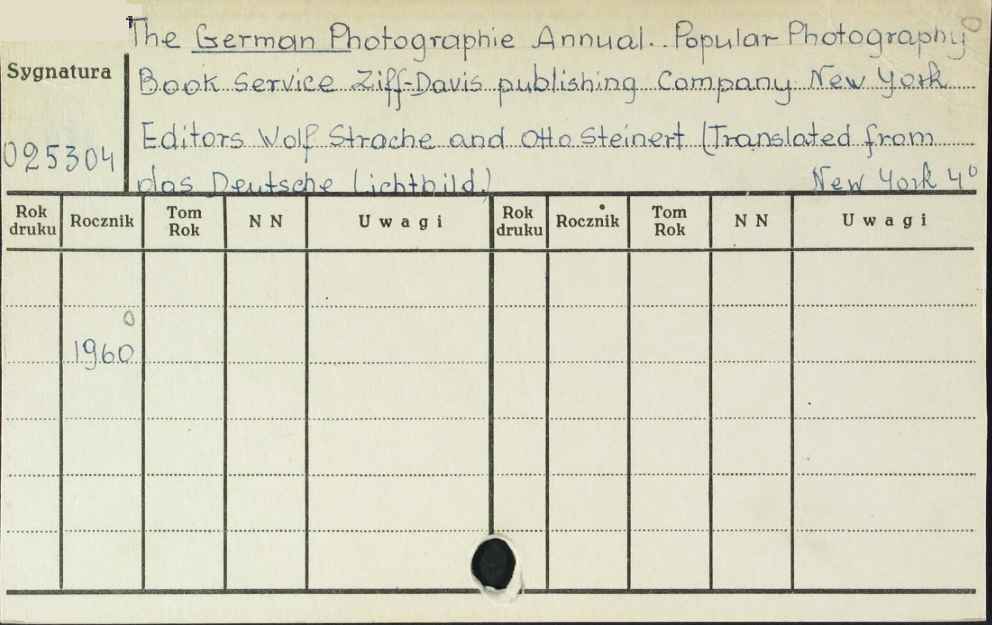 The German Photographie Annual. Popular Photography
Book Service Ziff-Davis publishing Company New York
Editors Wolf Strache and Otto Steinert (Translated from
das Deutsche Lichtbild.) New York 4°
Sygnatura
025304
Rok druku Rocznik Tom Rok N N Uwagi Rok druku Rocznik Tom Rok N N Uwagi
0
1960